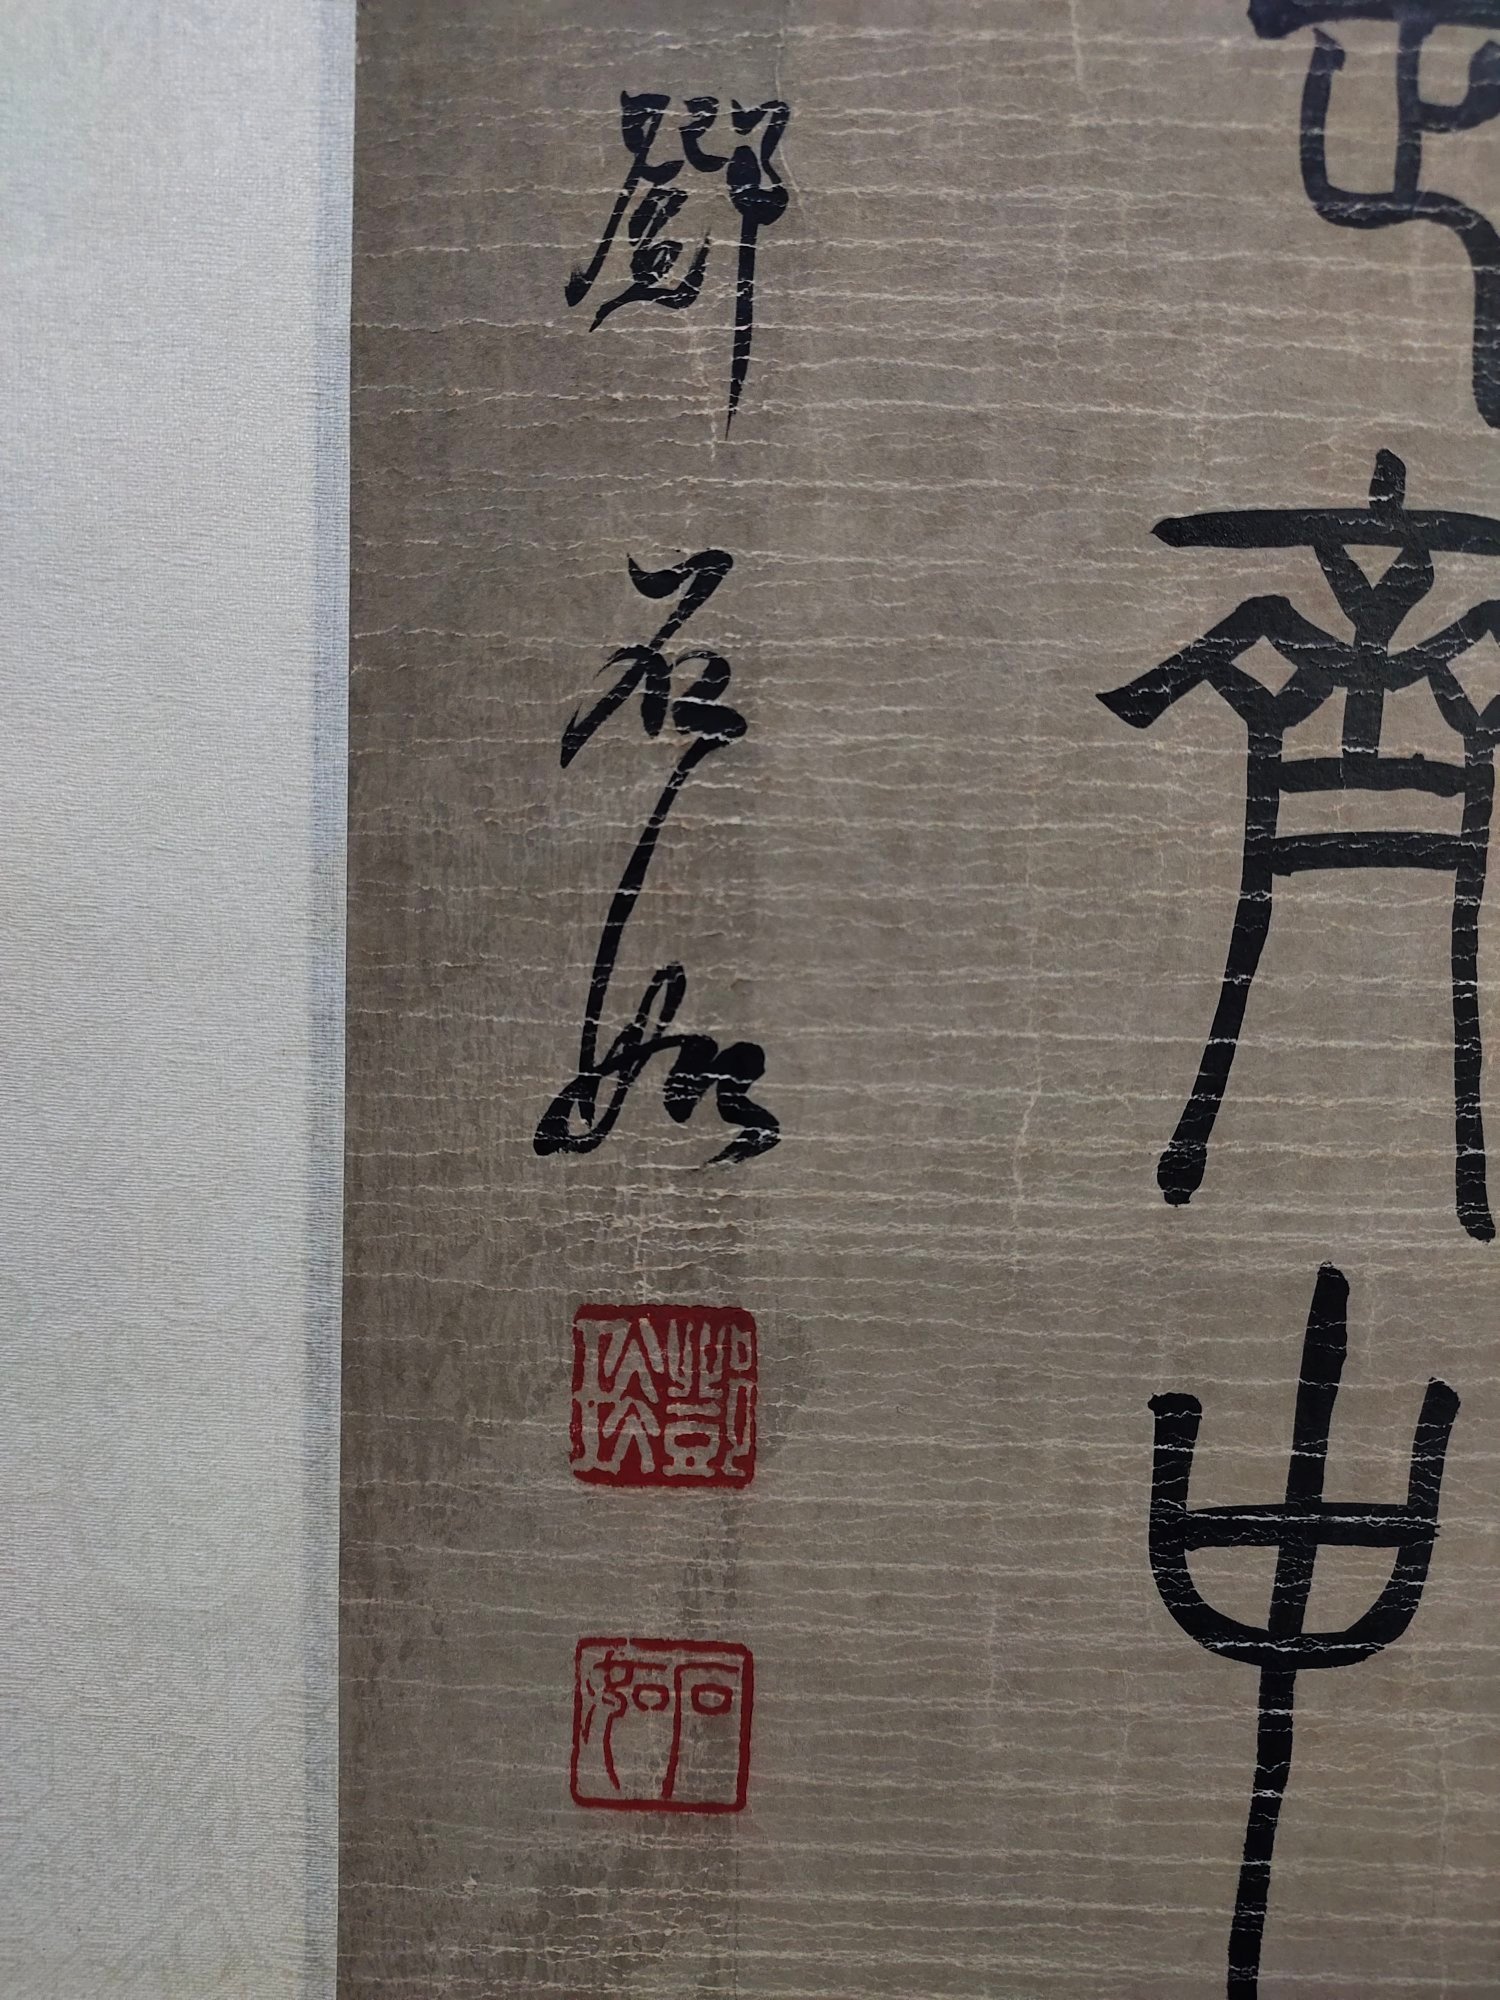 齊中
鄧石如
鄧琰
石如